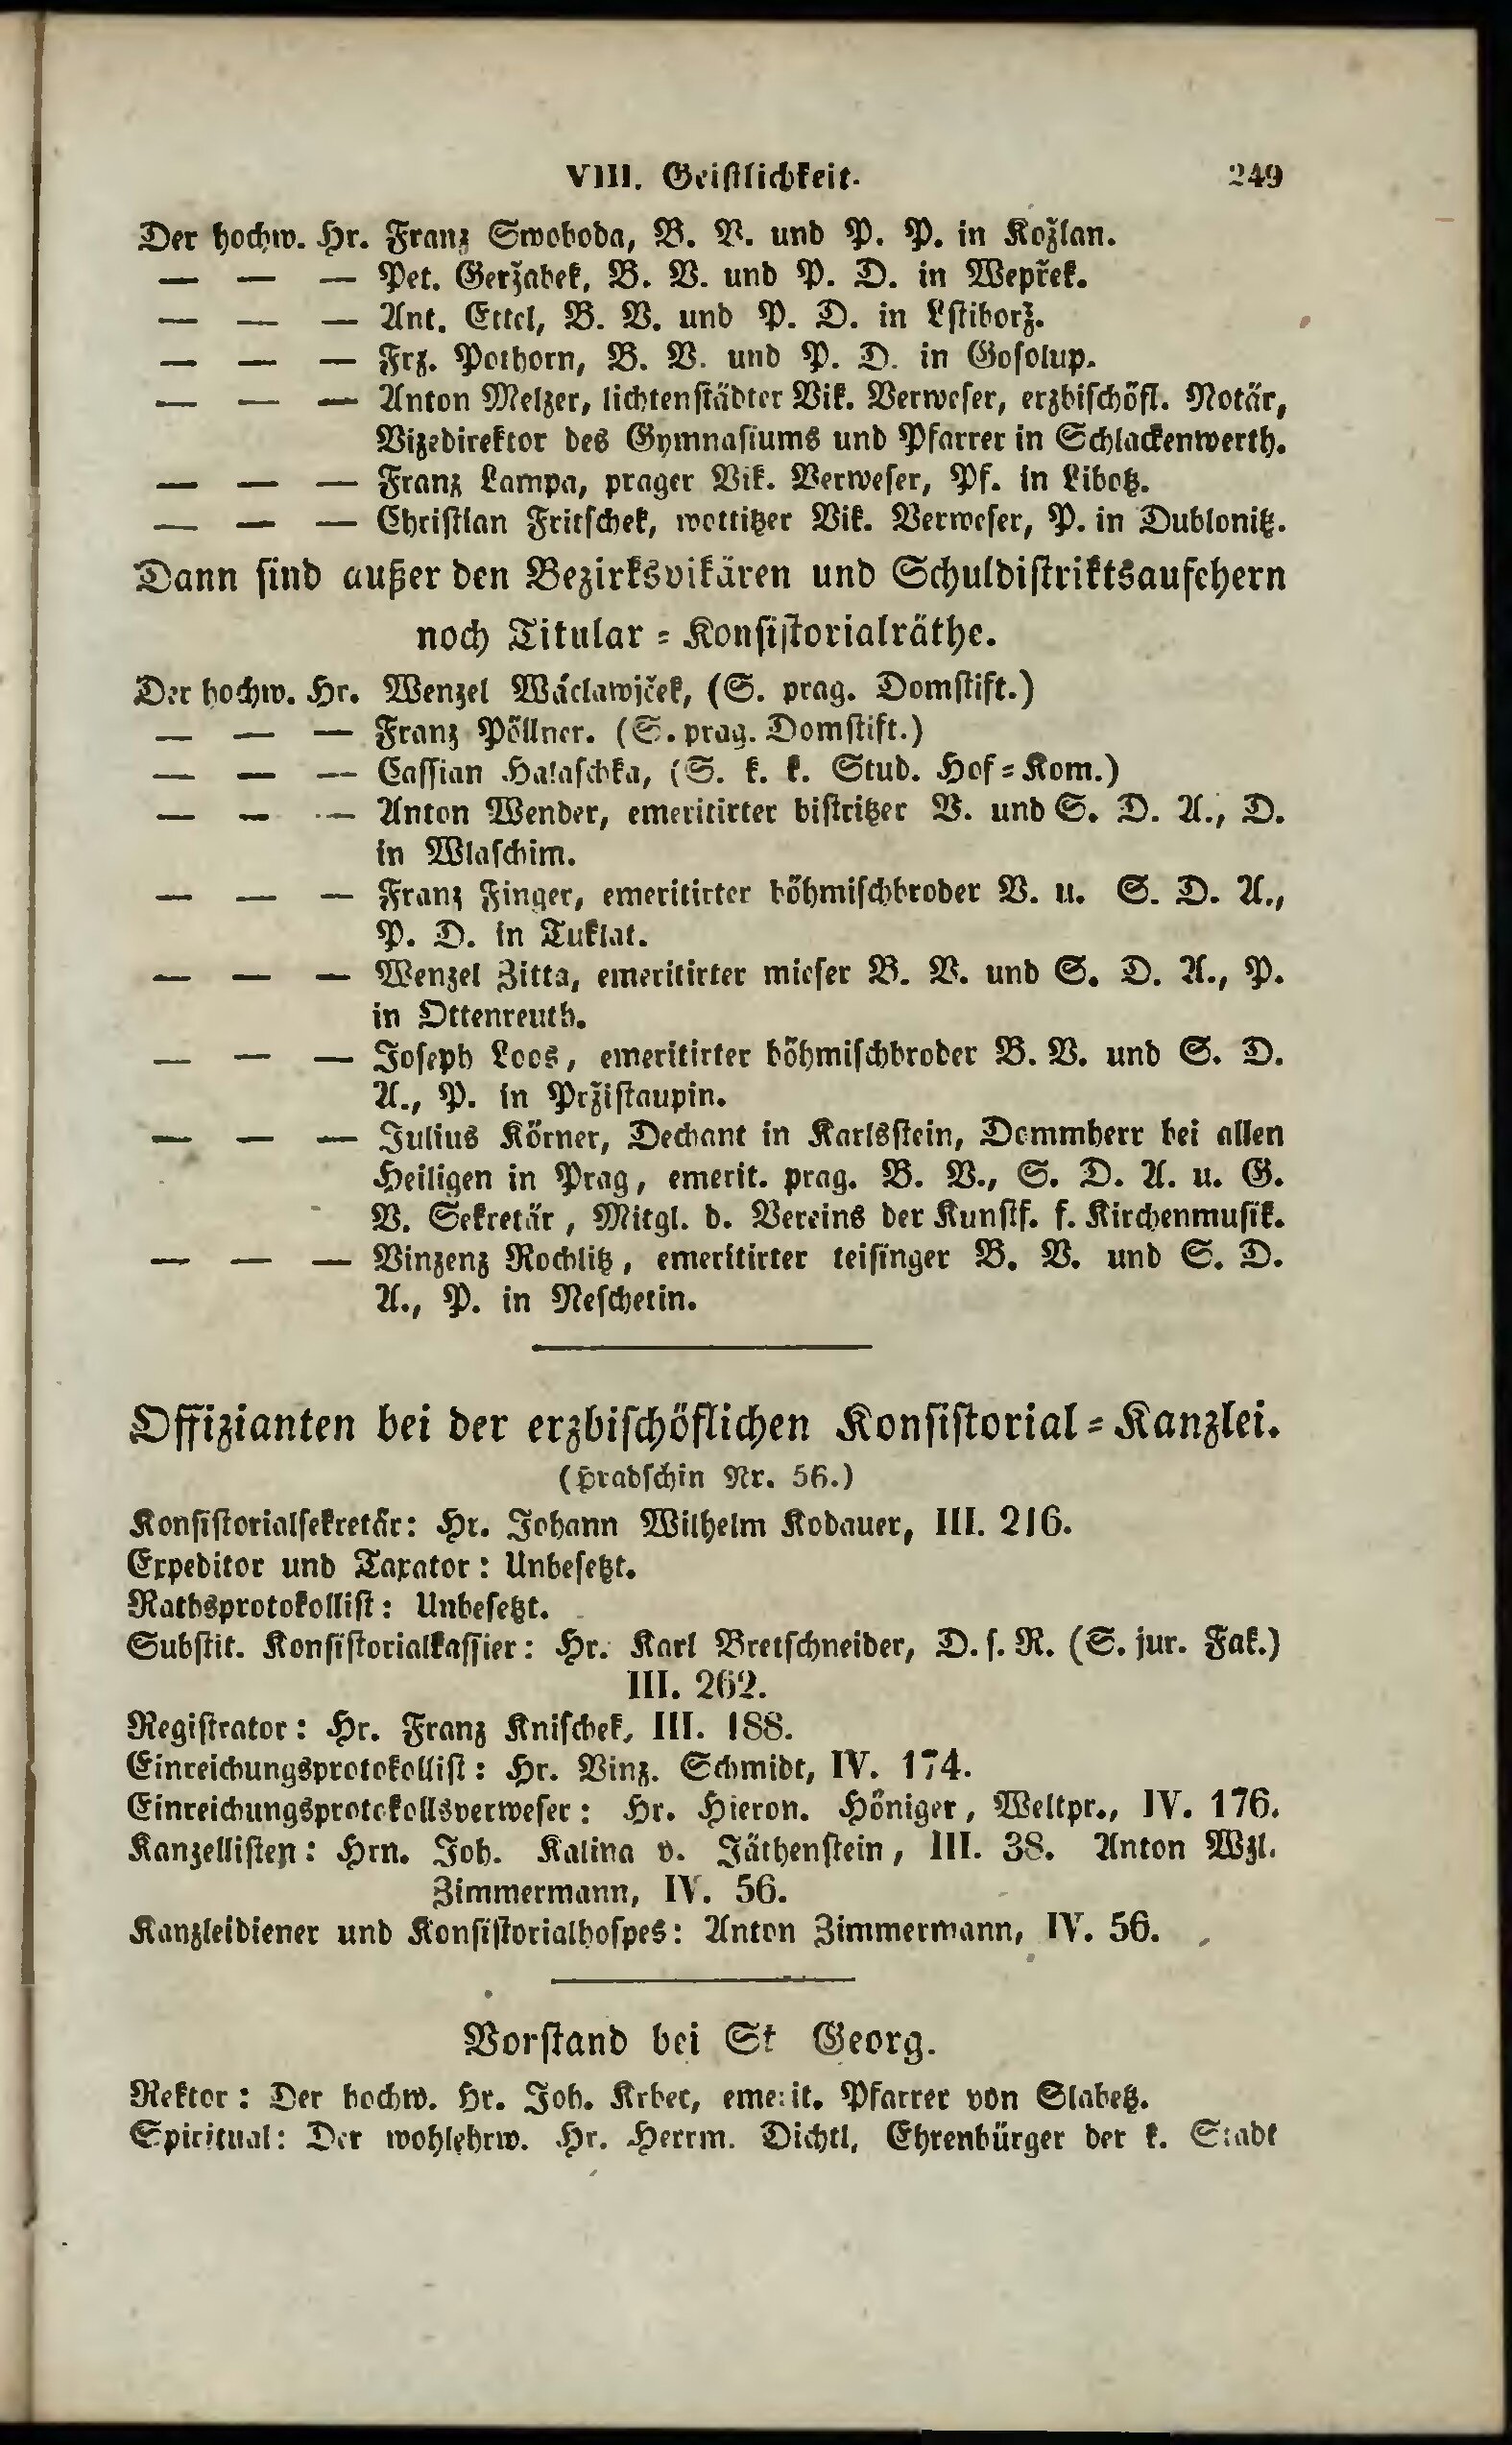 VIII. Geistlichkeit. 249
Der hochw. Hr. Franz Swoboda, B. V. und P. P. in Kožlan.
— — — Pet. Geržabek, B. V. und P. D. in Wepřek.
— — — Ant. Ettel, B. V. und P. D. in Lstiborž.
— — — Frz. Pothorn, B. V. und P. D. in Gosolup.
— — — Anton Melzer, lichtenstädter Vik. Verweser, erzbischöfl. Notär,
Vizedirektor des Gymnasiums und Pfarrer in Schlackenwerth.
— — — Franz Lampa, prager Vik. Verweser, Pf. in Libotz.
— — — Christian Fritschek, wottitzer Vik. Verweser, P. in Dublonitz.
Dann sind außer den Bezirksvikären und Schuldistriktsaufsehern
noch Titular=Konsistorialräthe.
Der hochw. Hr. Wenzel Wáclawjček, (S. prag. Domstift.)
— — — Franz Pöllner. (S. prag. Domstift.)
— — — Cassian Halaschka, (S. k. k. Stud. Hof=Kom.)
— — — Anton Wender, emeritirter bistritzer V. und S. D. A., D.
in Wlaschim.
— — — Franz Finger, emeritirter böhmischbroder V. u. S. D. A.,
P. D. in Tuklat.
— — — Wenzel Zitta, emeritirter mieser B. V. und S. D. A., P.
in Ottenreuth.
— — — Joseph Loos, emeritirter böhmischbroder B. V. und S. D.
A., P. in Pržistaupin.
— — — Julius Körner, Dechant in Karlsstein, Dommherr bei allen
Heiligen in Prag, emerit. prag. B. V., S. D. A. u. G.
V. Sekretär, Mitgl. d. Vereins der Kunstf. f. Kirchenmusik.
— — — Vinzenz Rochlitz, emeritirter teisinger B. V. und S. D.
A., P. in Neschetin.
Offizianten bei der erzbischöflichen Konsistorial=Kanzlei.
(Hradschin Nr. 56.)
Konsistorialsekretär: Hr. Johann Wilhelm Kobauer, III. 216.
Expeditor und Taxator: Unbesetzt.
Rathsprotokollist: Unbesetzt.
Substit. Konsistorialkassier: Hr. Karl Bretschneider, D. s. R. (S. jur. Fak.)
III. 262.
Registrator: Hr. Franz Knischek, III. 188.
Einreichungsprotokollist: Hr. Vinz. Schmidt, IV. 174.
Einreichungsprotokollsverweser: Hr. Hieron. Höniger, Weltpr., IV. 176.
Kanzellisten: Hrn. Joh. Kalina v. Jäthenstein, III. 38. Anton Wzl.
Zimmermann, IV. 56.
Kanzleidiener und Konsistorialhospes: Anton Zimmermann, IV. 56.
Vorstand bei St Georg.
Rektor: Der hochw. Hr. Joh. Krbec, emerit. Pfarrer von Slabetz.
Spiritual: Der wohlehrw. Hr. Herrm. Dichtl, Ehrenbürger der k. Stadt